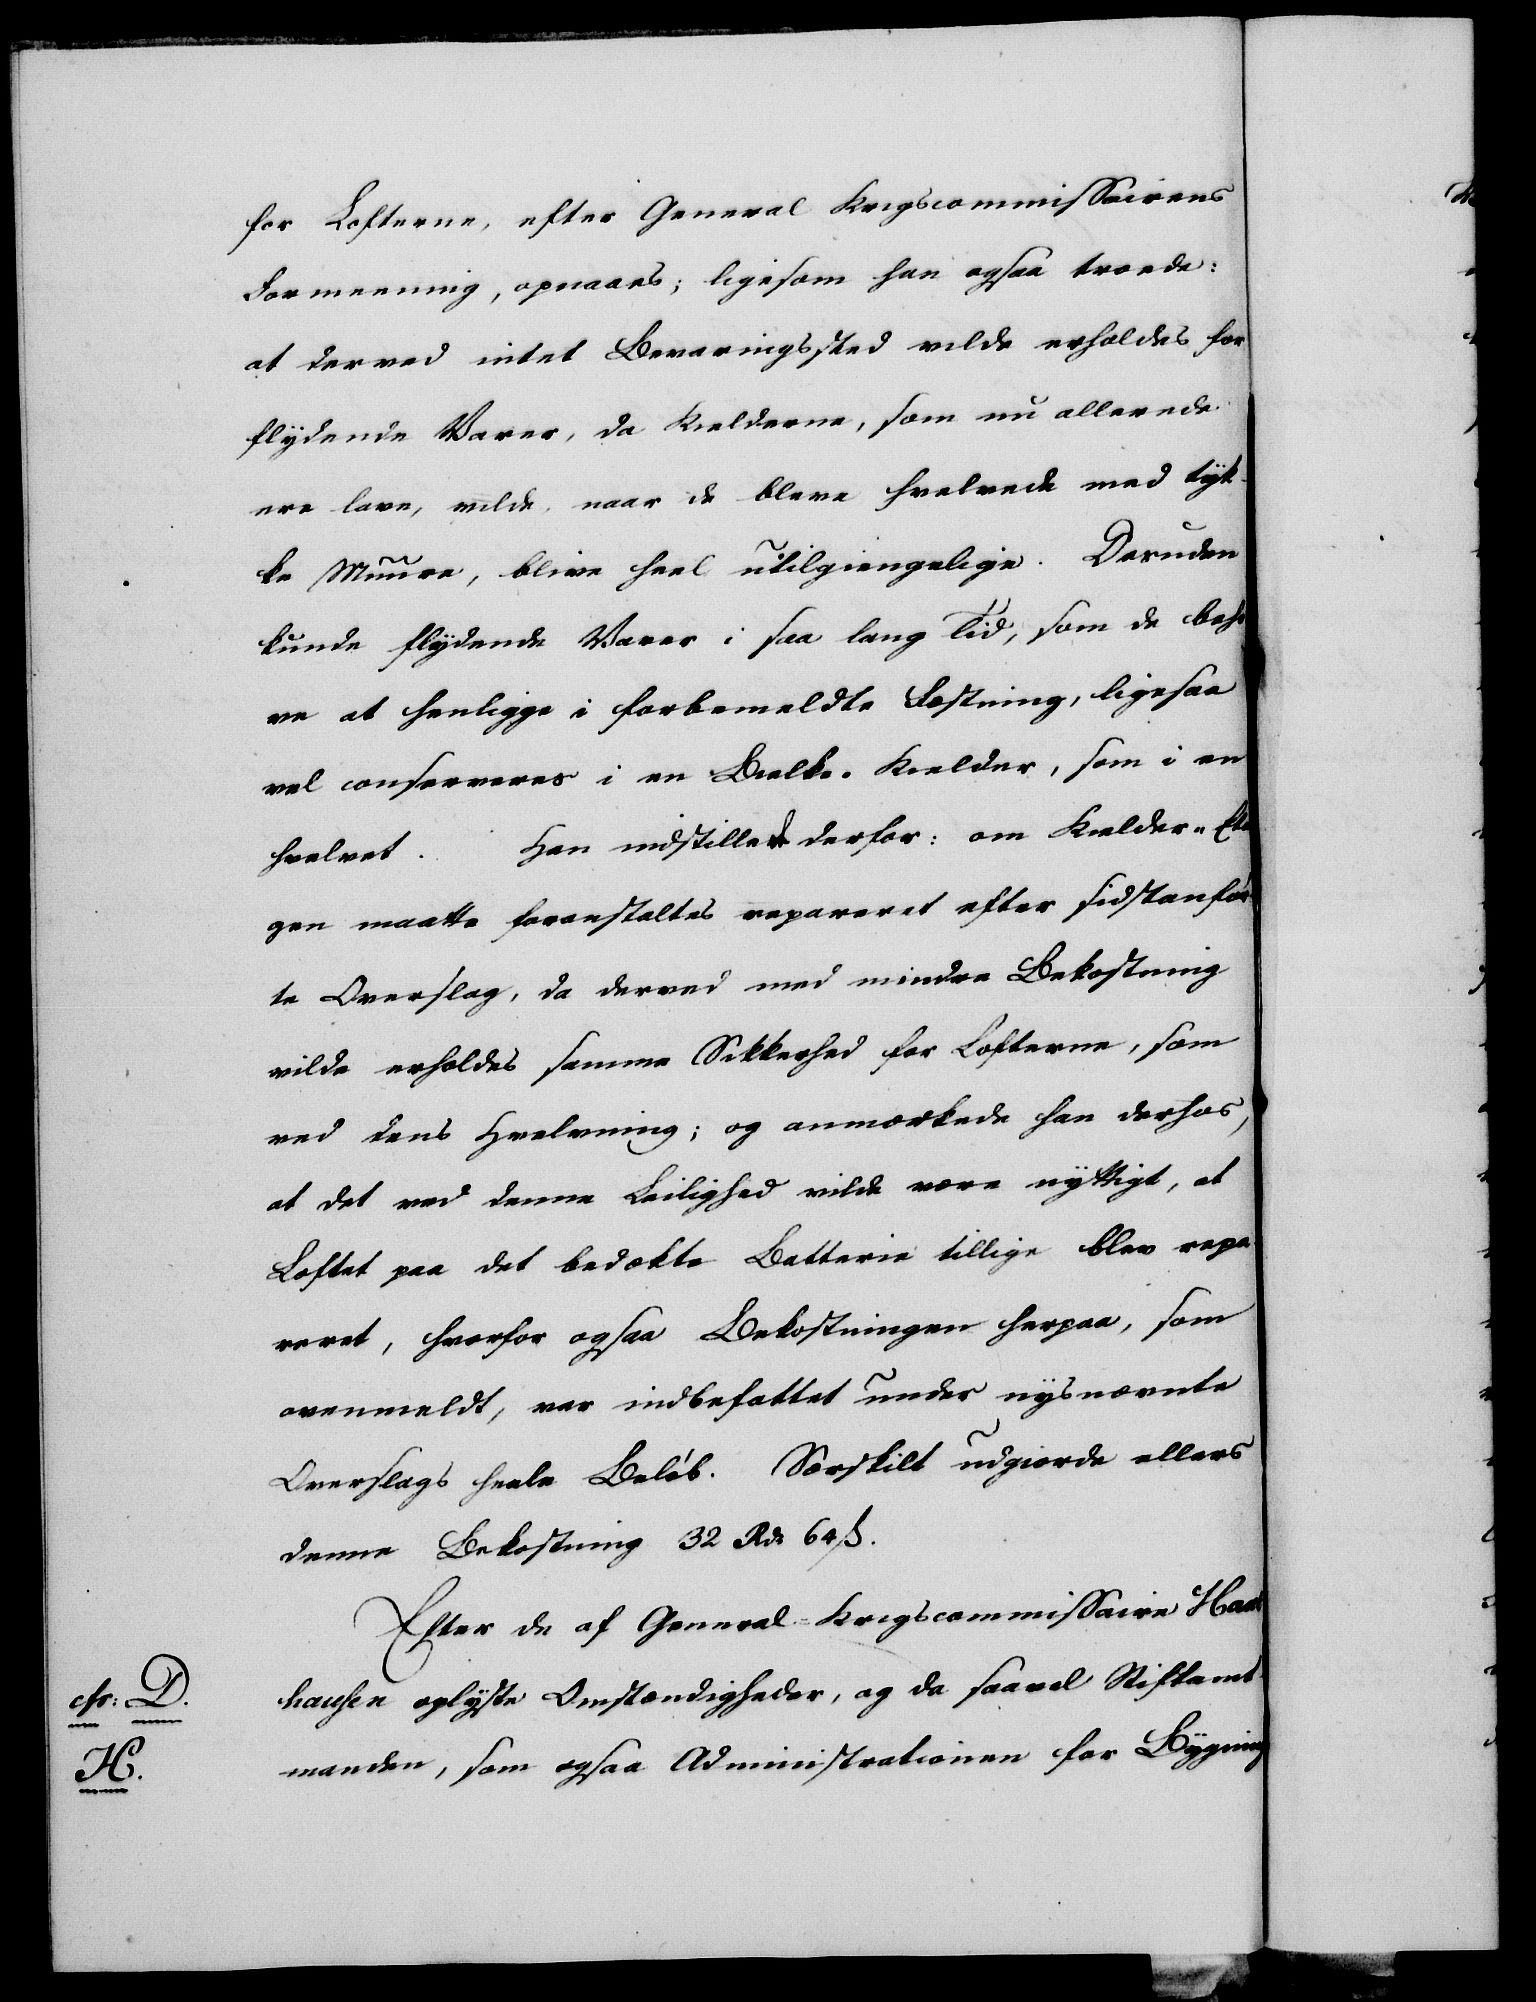 for Lofterne, efter General Krigscommissairens
Formeening, opnaaes; ligesom han ogsaa troede:
at derved intet Bevaringssted vilde erholdes for
flydende Varer, da Kielderne, som nu allerede
ere lave, vilde, naar de bleve hvelvede med tyk-
ke Muure, blive heel utilgiengelige. Desuden
kunde flydende Varer i saa lang Tid, som de beho-
ve at henligge i forbemeldte Fæstning, ligesaa
vel conserveres i en Bielke-Kielder, som i en
hvelvet. Han indstillede derfor: om Kielder-Eta
gen maatte foranstaltes repareret efter sidstanfør-
te Overslag, da derved med mindre Bekostning
vilde erholdes samme Sikkerhed for Lofterne, som
ved dens Hvelvning; og anmærkede han derhos,
at det ved denne Leilighed vilde være nyttigt, at
Loftet paa det bedækte Batterie tillige blev repa
reret, hvorfor ogsaa Bekostningen herpaa, som
ovenmeldt, var indbefattet under nysnævnte
Overslags heele Beløb. Særskilt udgiorde ellers
denne Bekostning 32 Rd 64 ß.
Efter de af General-Krigscommissaire Haxt
hausen oplyste Omstændigheder, og da saavel Stiftamt-
manden, som ogsaa Administrationen for Bygning
cfr: D.
H.